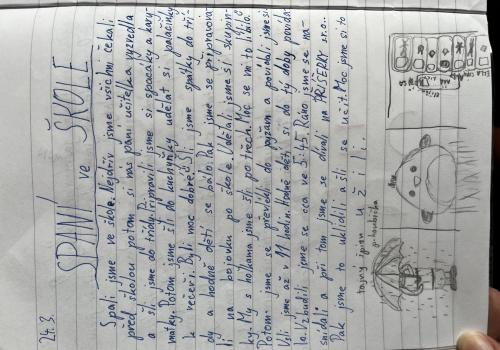 24.3.
SPANÍ ve ŠKOLE
Spali jsme ve škole. Nejdřív jsme všichni čekali
před školou potom si nás paní učitelka vyzvedla
a šli jsme do třídy. Připravili jsme si spacáky a kary-
matky. Potom jsme šli do kuchyňky udělat si palačinky
k večeři. Byli moc dobré. Šli jsme zpátky do tří-
dy a hodně dětí se bálo. Pak jsme se připravova-
li na bojovku po škole. Udělali jsme si skupin-
ky. My s holkama jsme šli po třech. Moc se mi to líbilo.
Potom jsme se převlékli do pyžam a povídali jsme si.
Usli jsme až v 11 hodin. Hodně dětí si do tý doby povída-
lo. Vzbudili jsme se cca ve 5:45. Ráno jsme se na-
snídali a při tom jsme se dívali na PŘÍŠERKY s.r.o..
Pak jsme to uklidili a šli se učit. Moc jsme si to
užili